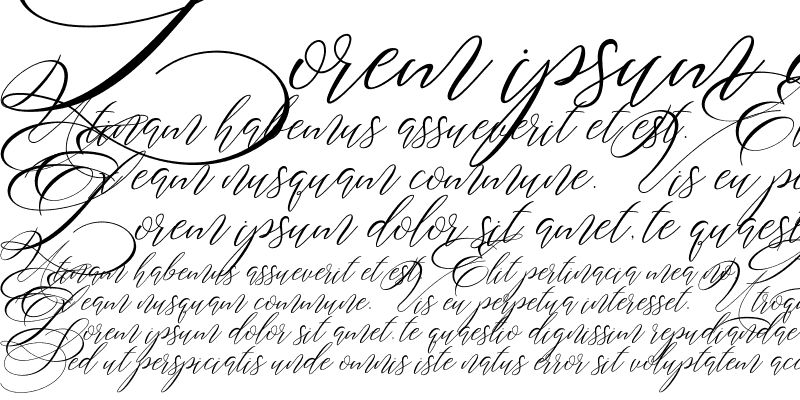 Lorem ipsum
Utinam habemus assueverit et est. El
Ex eam nusquam commune. Vis eu p
Lorem ipsum dolor sit amet, te quaest
Utinam habemus assueverit et est. Elit pertinacia mea no.
Ex eam nusquam commune. Vis eu perpetua interesset. Utroq
Lorem ipsum dolor sit amet, te quaestio dignissim repudiandae
Sed ut perspiciatis unde omnis iste natus error sit voluptatem acc